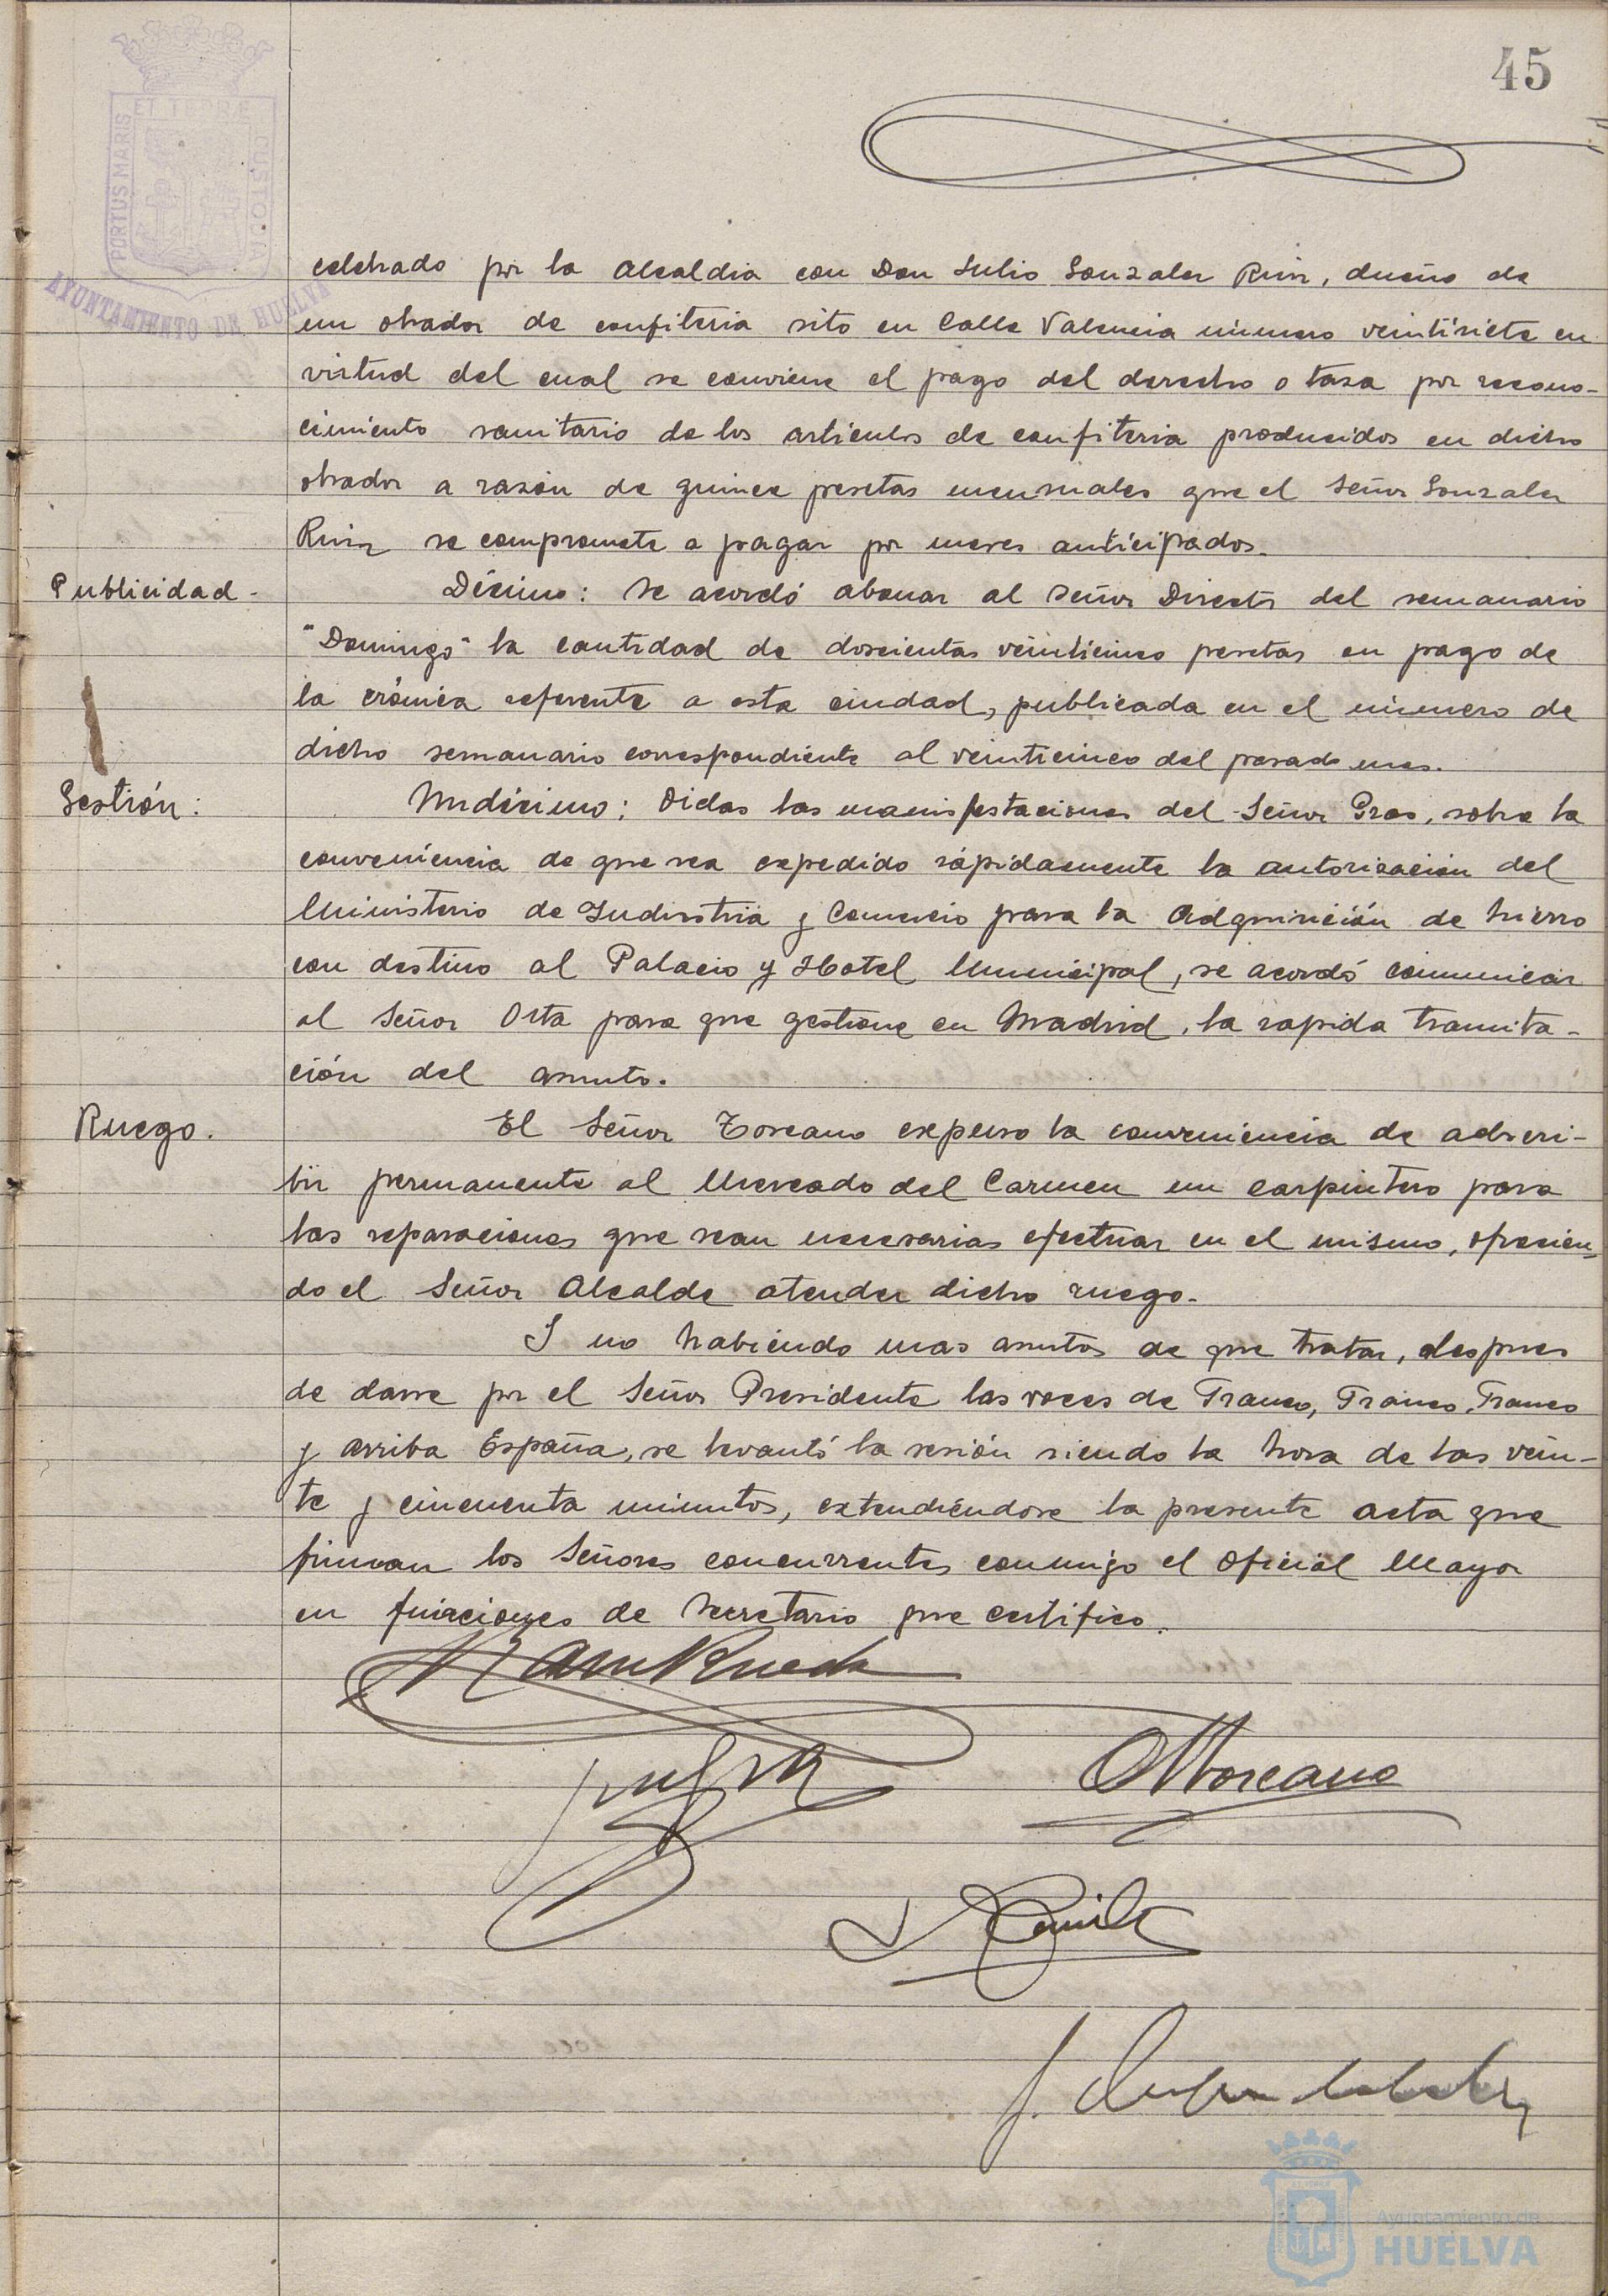 45
PORTUS MARIS ET TERRE CUSTODIA
AYUNTAMIENTO DE HUELVA
celebrado por la Alcaldia con Don Julio Gonzalez Ruiz, dueño de
un obrador de confiteria sito en Calle Valencia número veintisiete en
virtud del cual se conviene el pago del derecho o tasa por recono-
cimiento sanitario de los articulos de confiteria producidos en dicho
obrador a razón de quince pesetas mensuales que el Señor Gonzalez
Ruiz se compromete a pagar por meses anticipados.
Publicidad - Décimo: Se acordó abonar al Señor Director del semanario
"Domingo" la cantidad de doscientas veinticinco pesetas en pago de
la crónica referente a esta ciudad, publicada en el número de
dicho semanario correspondiente al veinticinco del pasado mes.
Gestión: Undécimo: Oidas las manifestaciones del Señor Pras, sobre la
conveniencia de que sea expedido rápidamente la autorización del
Ministerio de Industria y Comercio para la Adquisición de hierro
con destino al Palacio y Hotel Municipal, se acordó comunicar
al Señor Orta para que gestione en Madrid, la rapida tramita-
ción del asunto.
Ruego. El Señor Toscano expuso la conveniencia de adscri-
bir permanente al Mercado del Carmen un carpintero para
las reparaciones que sean necesarias efectuar en el mismo, ofrecien-
do el Señor Alcalde atender dicho ruego.
Y no habiendo mas asuntos de que tratar, despues
de darse por el Señor Presidente las voces de Franco, Franco, Franco
y Arriba España, se levantó la sesión siendo la hora de las vein-
te y cincuenta minutos, extendiéndose la presente acta que
firman los Señores concurrentes conmigo el Oficial Mayor
en funciones de Secretario que certifico.
Toscano
Ayuntamiento de
HUELVA